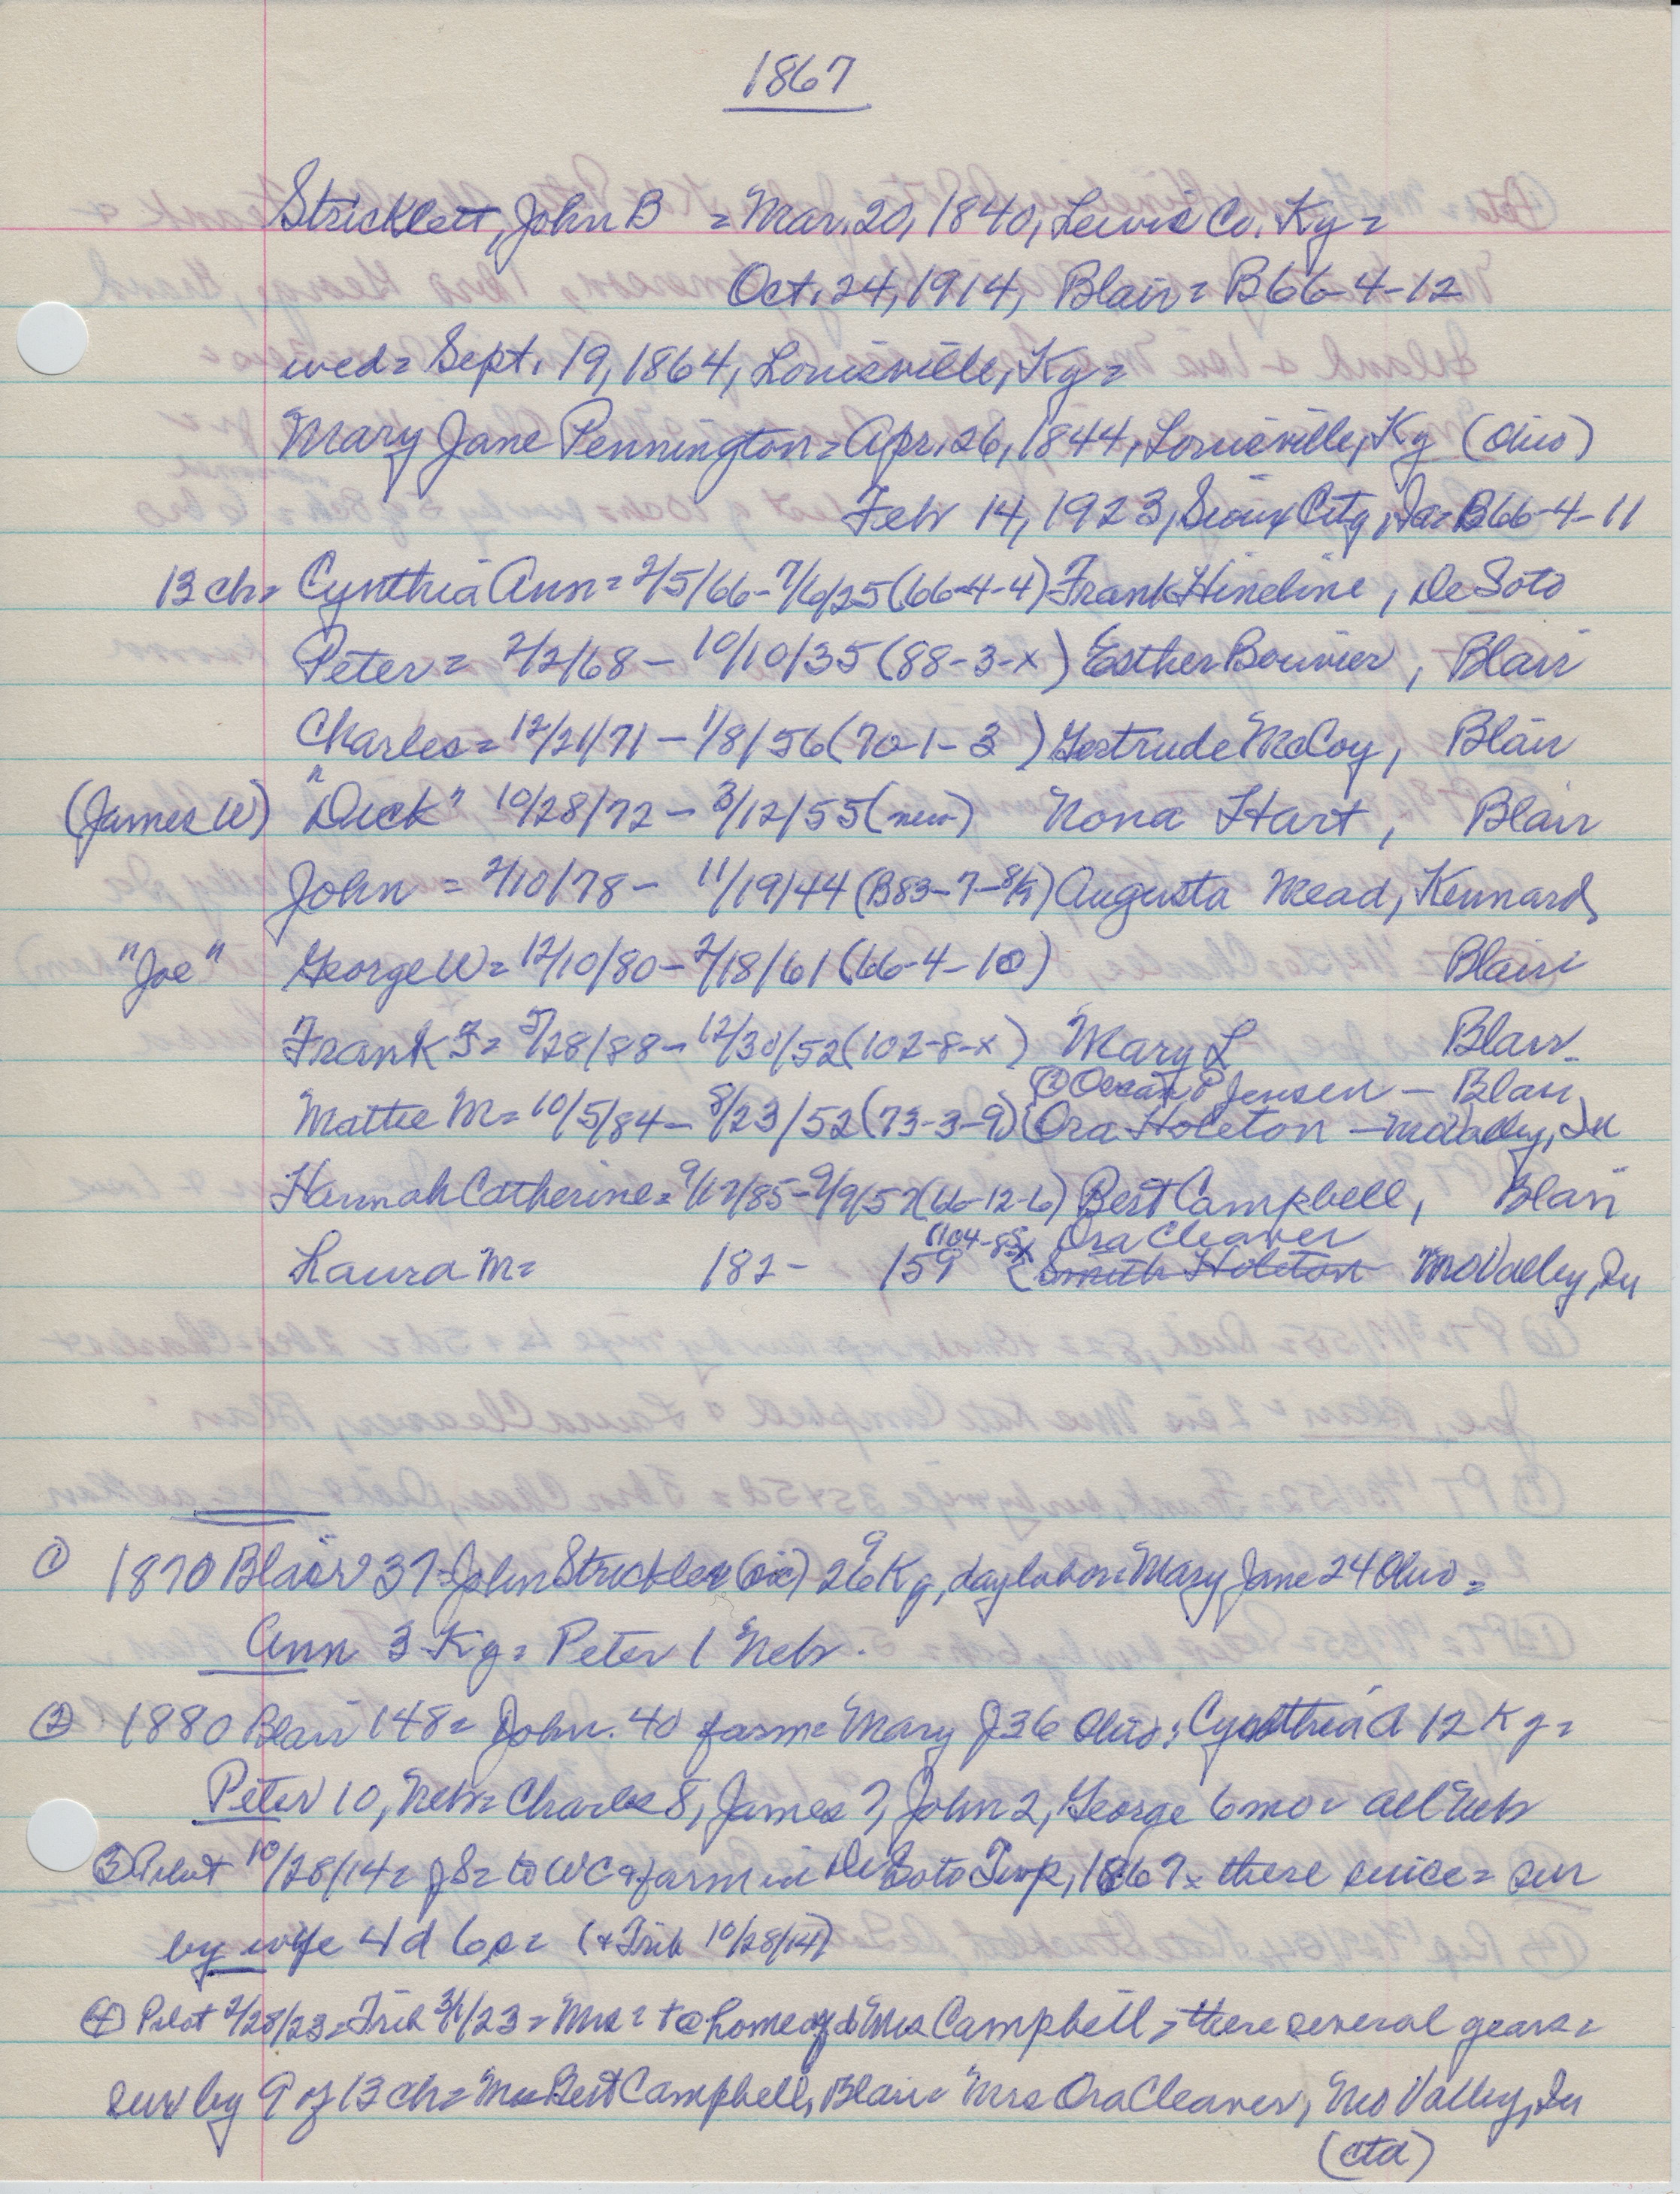 1867
Stricklett, John B = Mar. 20, 1840, Lewis Co. Ky =
Oct. 24, 1914, Blair = B66-4-12
wed = Sept. 19, 1864, Louisville, Ky =
Mary Jane Pennington = Apr. 26, 1844, Louisville, Ky (Ohio)
Feb 14, 1923, Sioux City, Ia = B66-4-11
13 ch = Cynthia Ann = 2/5/66 - 7/6/25 (66-4-4) Frank Hineline, De Soto
Peter = 2/2/68 - 10/10/35 (88-3-x) Esther Bouvier, Blair
Charles = 12/21/71 - 1/8/56 (70-1-3) Gertrude McCoy, Blair
(James W) "Dick" 10/28/72 - 3/12/55 (new) Nona Hart, Blair
John = 2/10/78 - 11/19/44 (B83-7-8/9) Augusta Mead, Kennard
"Joe" George W = 12/10/80 - 2/18/61 (66-4-10) Blair
Frank F = 5/28/88 - 12/30/52 (102-8-x) Mary L Blair
② Oscar P Jensen - Blair
Mattie M = 10/5/84 - 8/23/52 (73-3-9) (Ora Holeton - Mo Valley, Ia
Hannah Catherine = 9/17/85 - 9/9/57 (66-12-6) Bert Campbell, Blair
(104-8-x Ora Cleaver
Laura M = 182 - 159 (Smith Holeton Mo Valley, Ia
① 1870 Blair 37 = John Strickler (sic) 26 9 Ky, day labor = Mary Jane 24 Ohio =
Ann 3 Ky = Peter 1 Neb.
② 1880 Blair 148 = John 40 farm = Mary J 36 Ohio = Cynthia A 12 Ky =
Peter 10, Neb = Charles 8, James 7, John 2, George 6 mo = all Neb
③ Pilot 10/28/14 = JS = to WC & farm in De Soto Twp, 1867 = there since = sur
by wife 4 d 6 s = (& Trib 10/28/14)
④ Pilot 2/28/23 = Trib 3/1/23 = Mrs = + @ home of d Mrs Campbell, there several years =
sur by 9 of 13 ch = Mrs Bert Campbell, Blair = Mrs Ora Cleaver, Mo Valley, Ia
(ctd)